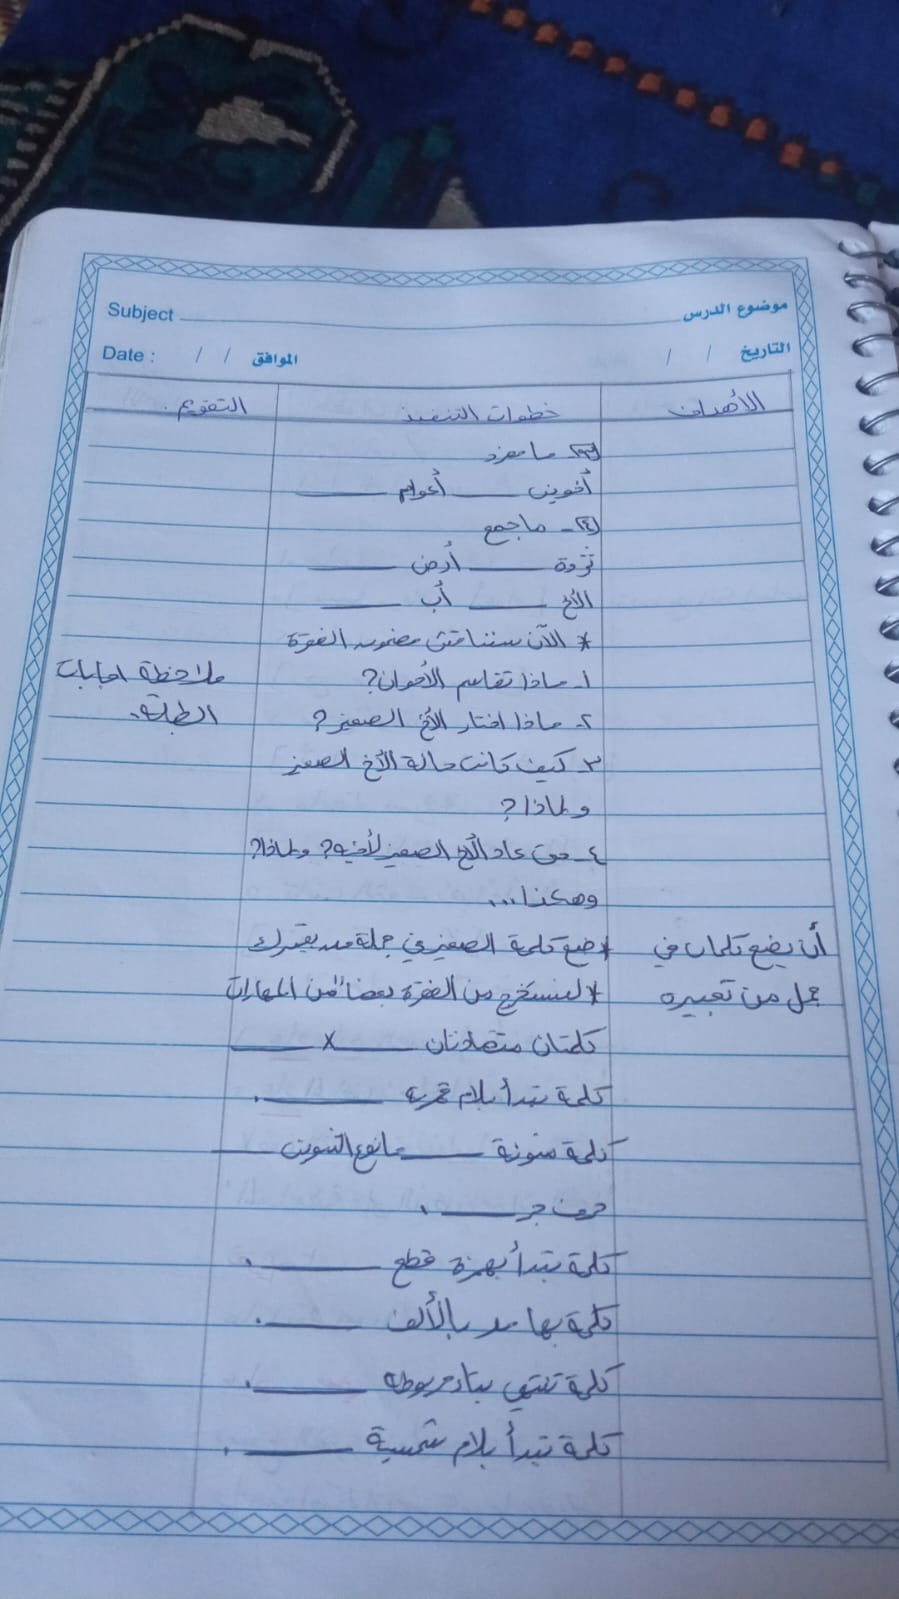 موضوع الدرس
Subject
التاريخ / /
الموافق / /
Date :
الأهداف
خطوات التنفيذ
التقويم
(٣) ما مفرد
أخوين ____ أعوام ____
(٤) - ما جمع
ثروة ____ أرض ____
الأخ ____ أب ____
* الآن سنناقش مضمون الفقرة
١- ماذا تقاسم الأخوان؟
ملاحظة اجابات
٢- ماذا اختار الأخ الصغير؟
الطلبة.
٣- كيف كانت حالة الأخ الصغير
ولماذا؟
٤- متى عاد الأخ الصغير لأخيه؟ ولماذا؟
وهكذا...
أن يضع كلمات في
* ضع كلمة الصغير في جملة من تعبيرك
جمل من تعبيره
* لنستخرج من الفقرة بعضا من المهارات
كلمتان متضادتان ____ x ____
كلمة تبدأ بلام قمرية ____.
كلمة منونة ____ ما نوع التنوين ____
حرف جر ____.
كلمة تبدأ بهمزة قطع ____.
كلمة بها مد بالألف ____.
كلمة تنتهي بتاء مربوطة ____.
كلمة تبدأ بلام شمسية ____.